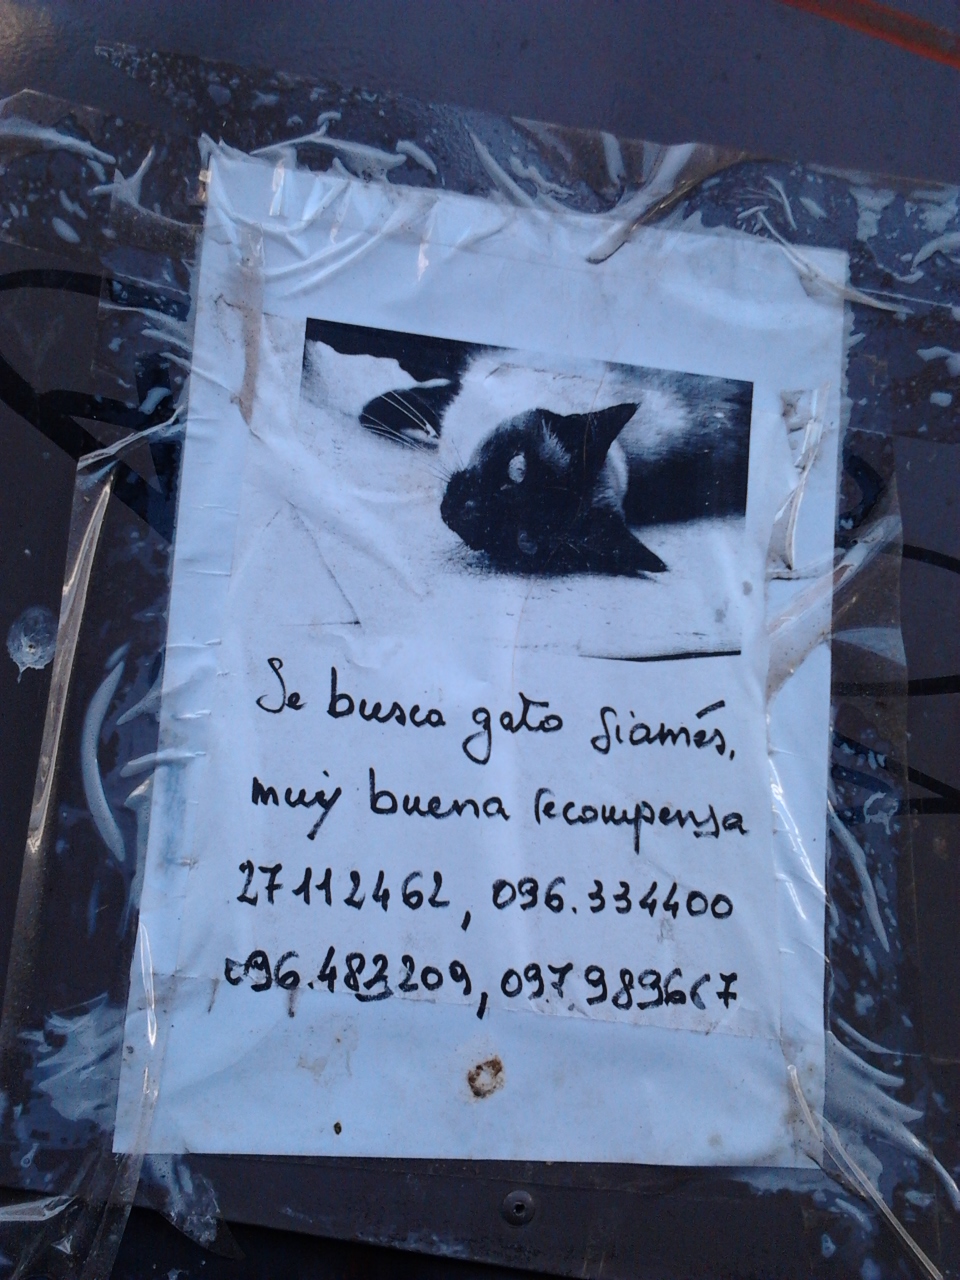 Se busca gato Siamés,
muy buena recompensa
27112462, 096.334400
096.483209, 097989667